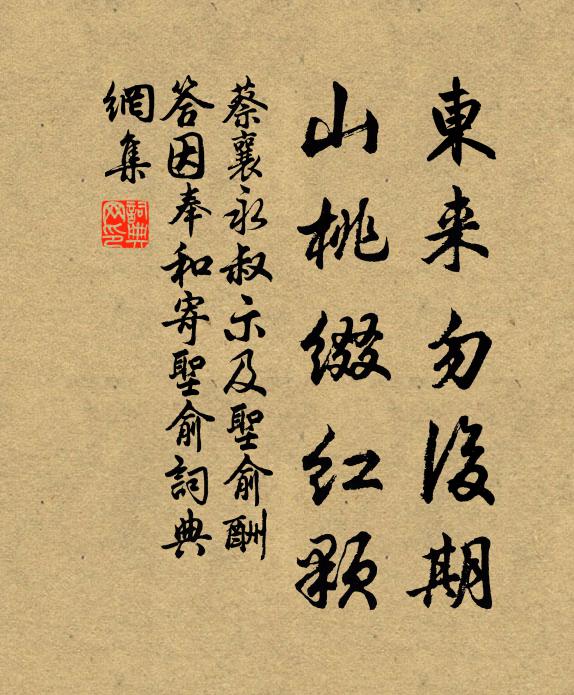 東来勿後期
山桃綴紅顆
蔡襄永叔示及聖俞酬
答因奉和寄聖俞詞典
網集
詞典
网印